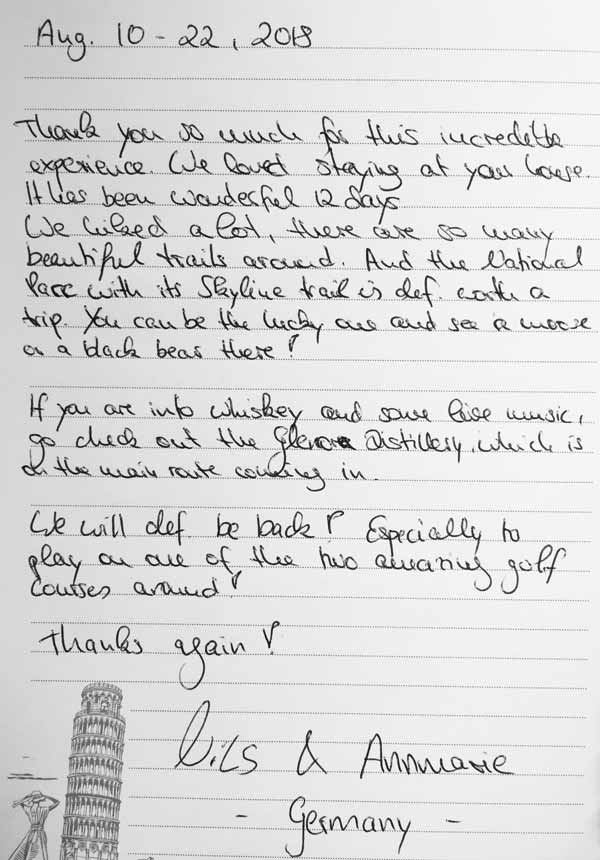 Aug. 10 - 22, 2018
Thank you so much for this incredible
experience. We loved staying at your house.
It has been wonderful 12 days
We hiked a lot, there are so many
beautiful trails around. And the National
Parc with its Skyline trail is def. worth a
trip. You can be the lucky one and see a moose
or a black bear there!
If you are into whiskey and some live music,
go check out the Glenora Distillery, which is
on the main route coming in.
We will def. be back! Especially to
play on one of the two amazing golf
courses around!
Thanks again!
Nils & Annmarie
- Germany -